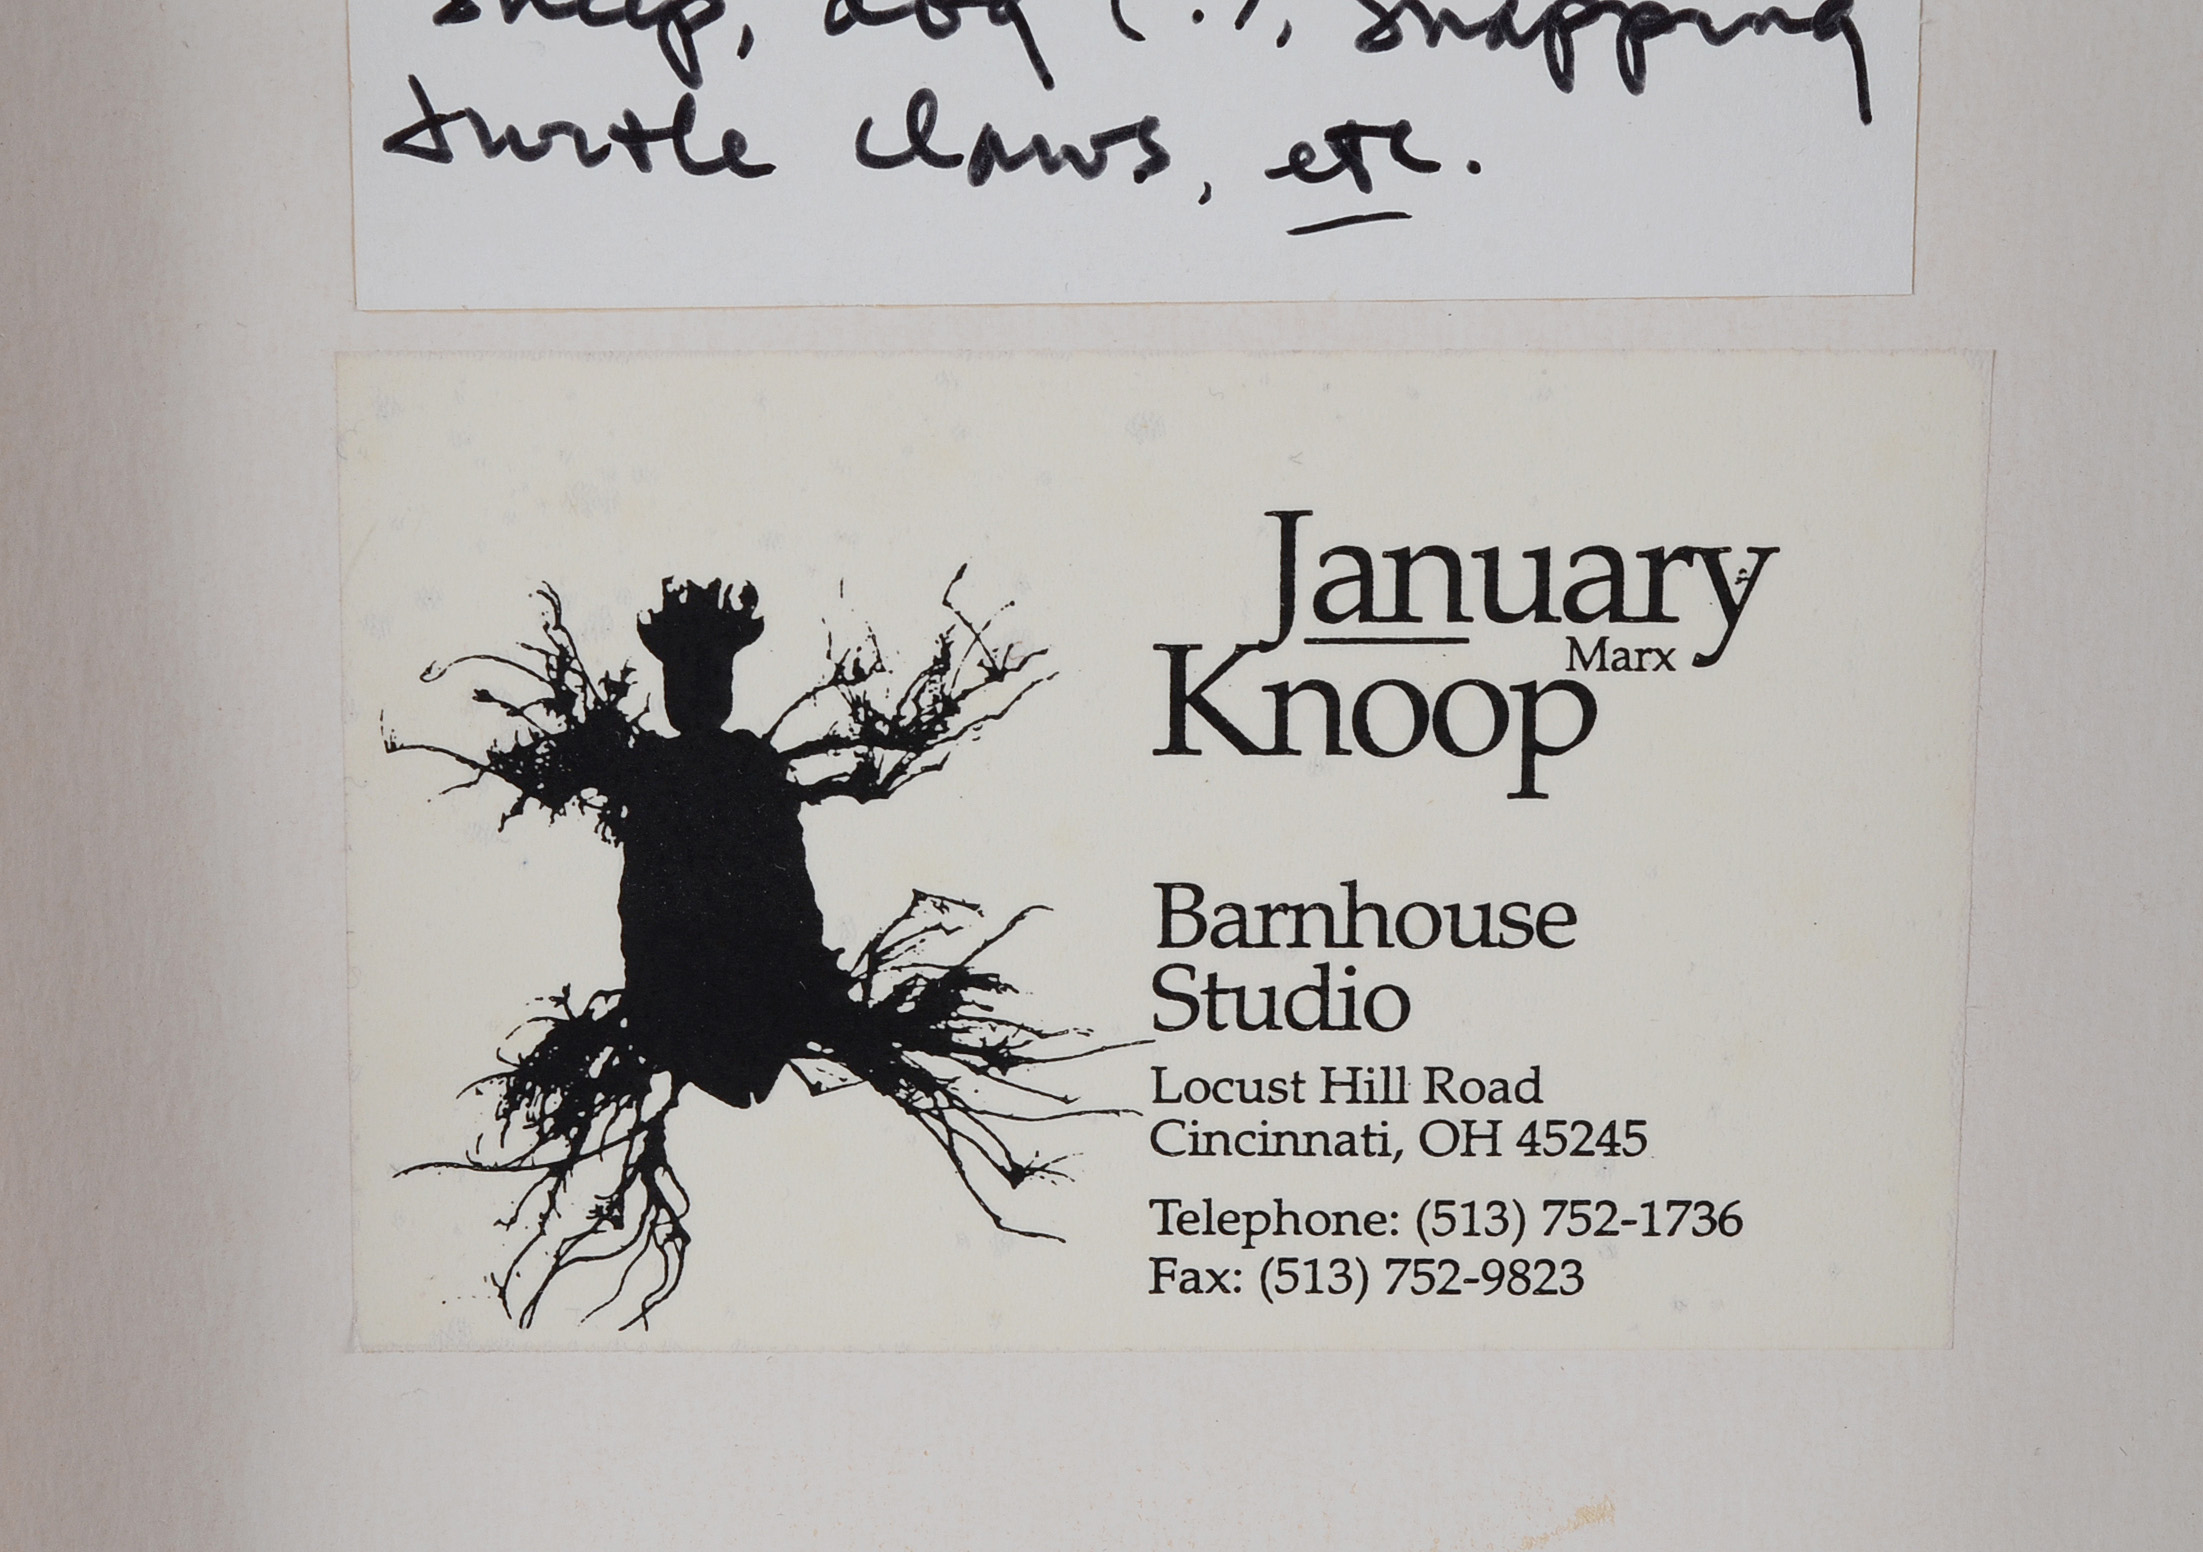 sheep, dog (?), snapping
turtle claws, etc.
January
Marx
Knoop
Barnhouse
Studio
Locust Hill Road
Cincinnati, OH 45245
Telephone: (513) 752-1736
Fax: (513) 752-9823